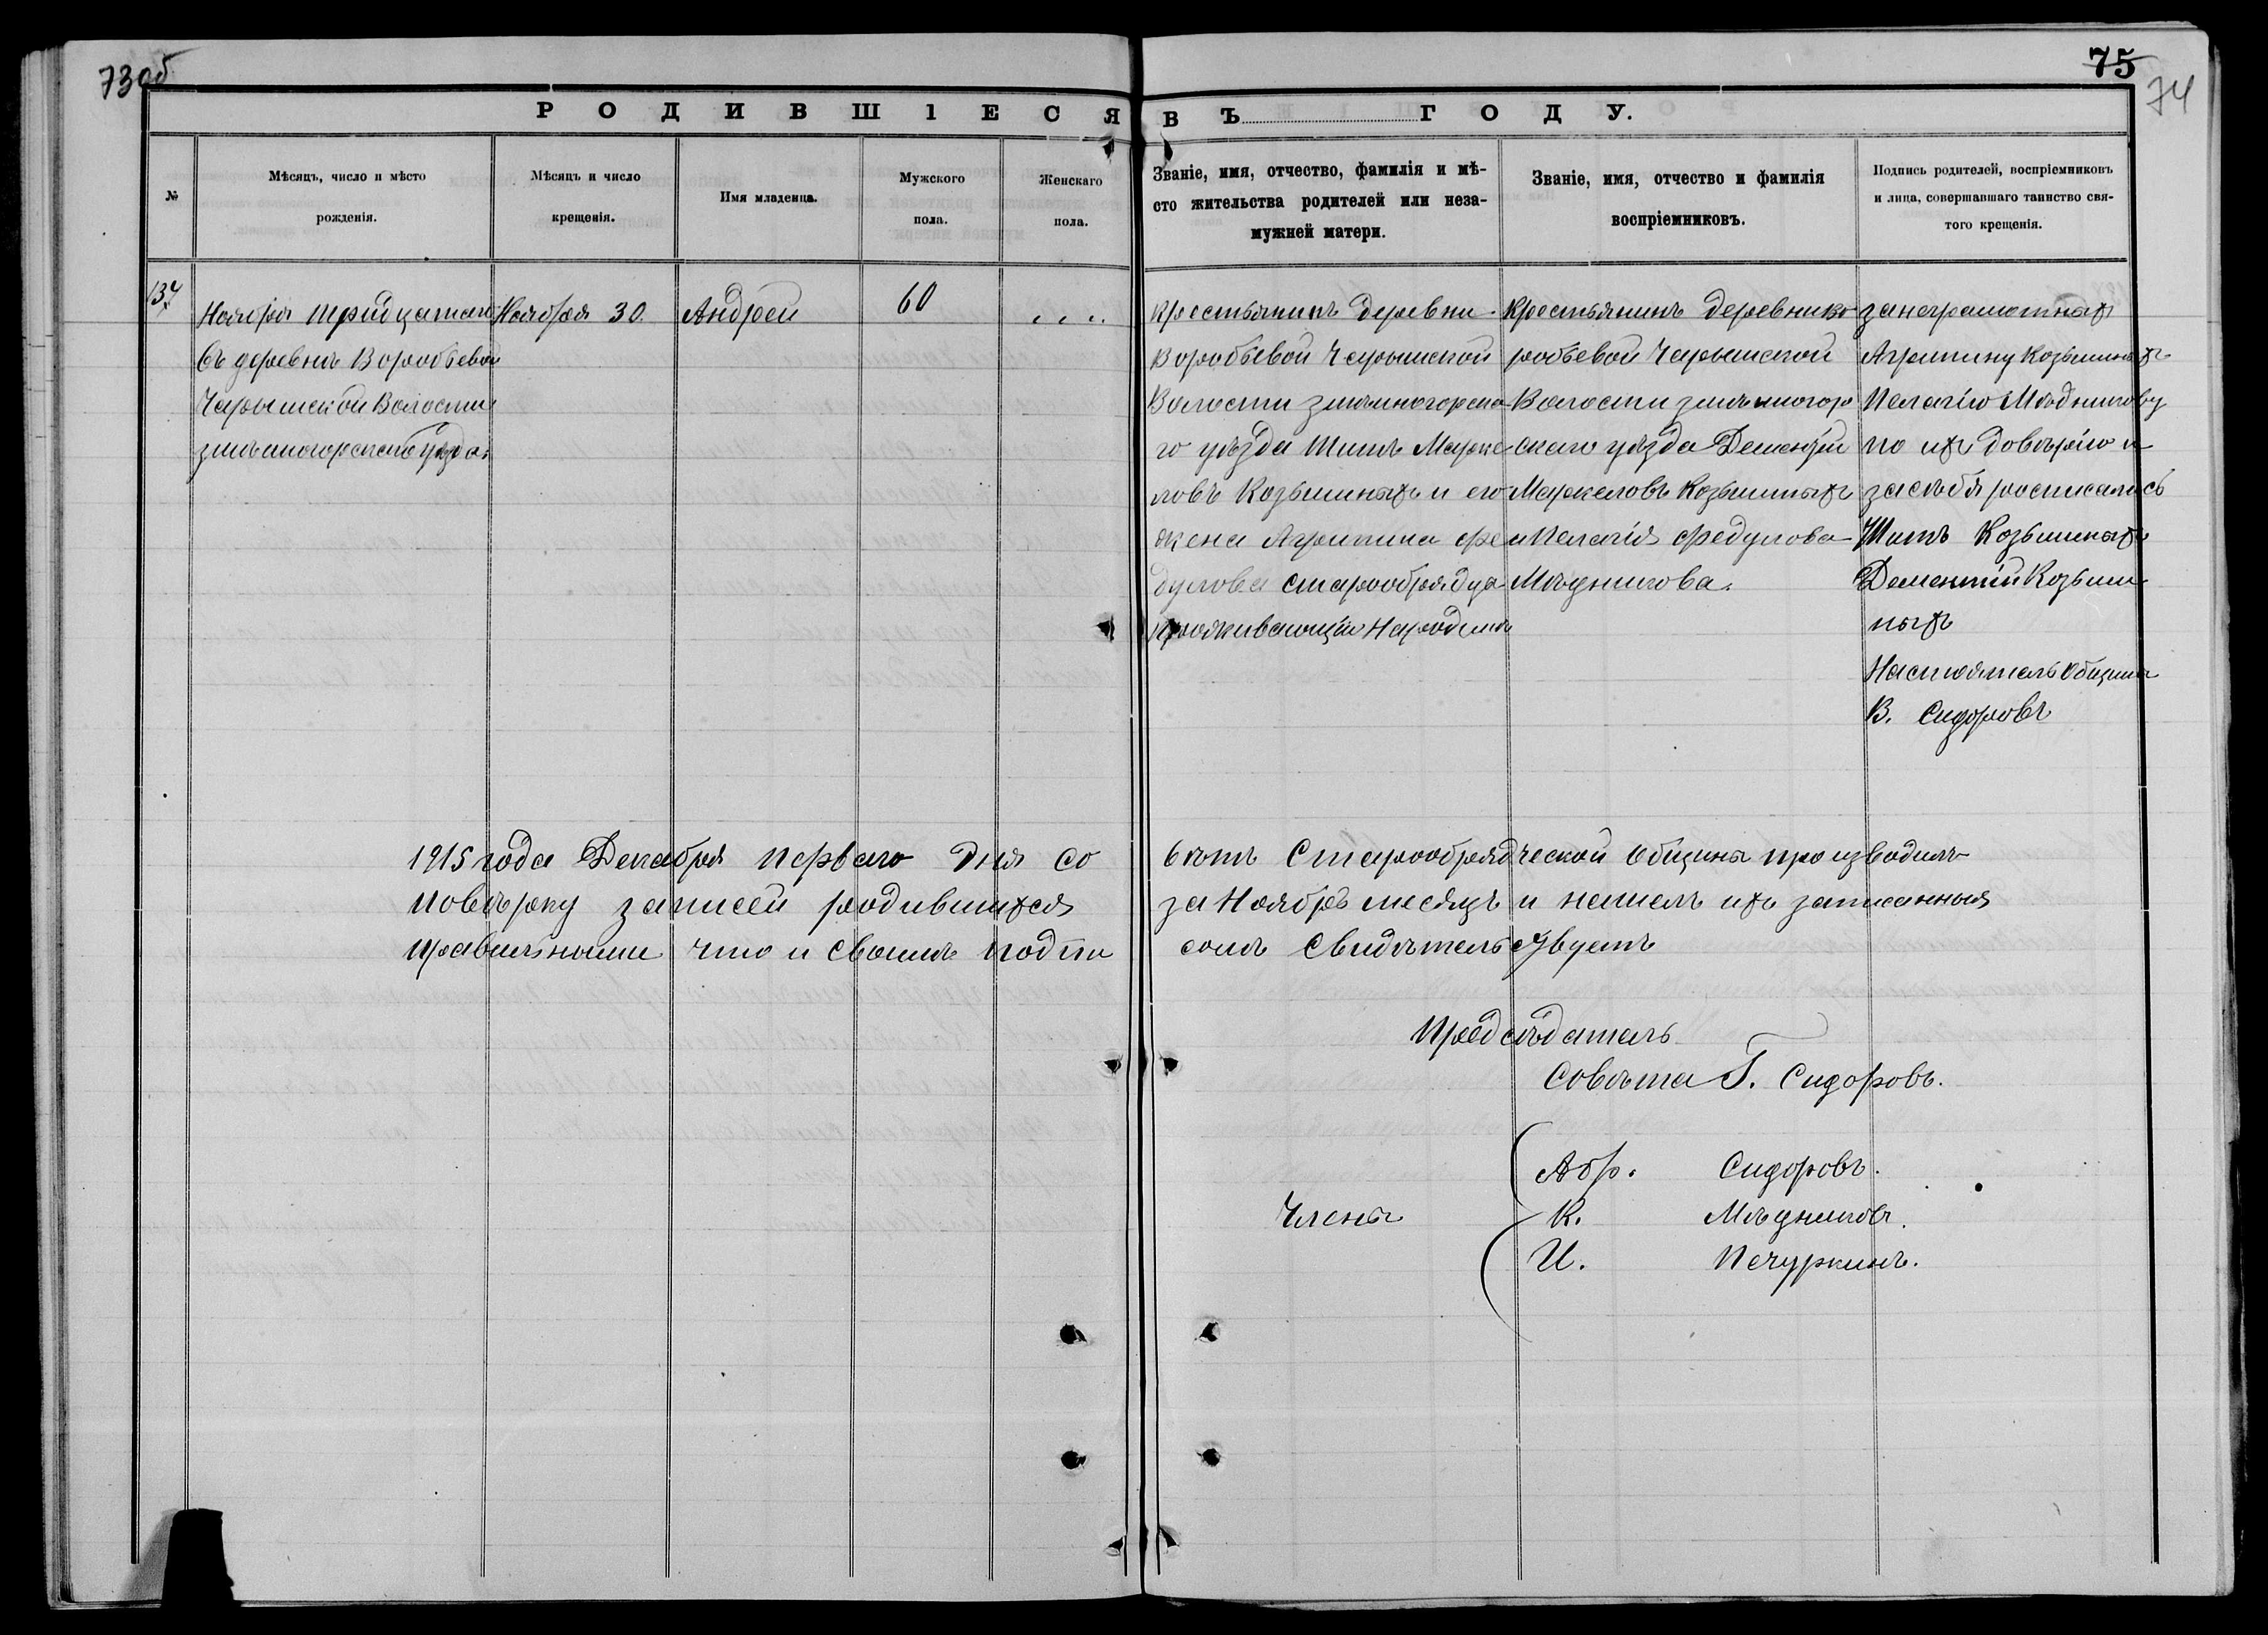 73об
75
74
РОДИВШIЕСЯ ВЪ ГОДУ.
№
Мѣсяцъ, число и мѣсто
рожденiя.
Мѣсяцъ и число
крещенiя.
Имя младенца.
Мужского
пола.
Женскаго
пола.
Званiе, имя, отчество, фамилiя и мѣ-
сто жительства родителей или неза-
мужней матери.
Званiе, имя, отчество и фамилiя
воспрiемниковъ.
Подпись родителей, воспрiемниковъ
и лица, совершавшаго таинство свя-
того крещенiя.
137
Ноября тридцатаго
Съ деревнѣ Воробьевой
Чарышской Волости
змѣиногорскаго уѣзда.
Ноября 30
Андрей
60
Крестьянинъ деревни
Воробьевой Чарышской
Волости змѣиногорска-
го уѣзда Титъ Марке-
ловъ Козьминыхъ и его
жена Агрипина Фе
дулова старообрядца
проживающiи На родинѣ
Крестьянинъ деревни Во
робьевой Чарышской
Волости змѣиногор
скаго уѣзда Дементiй
Маркеловъ Козьминыхъ
и Пелагiя Федулова
Мѣдникова.
за неграмотныхъ
Агрипину Козьминыхъ
Пелагiю Мѣдникову
по ихъ довѣрiю и
за себя росписались
Титъ Козьминыхъ
Дементiй Козьми
ныхъ
Настоятель Общины
В. Сидоровъ
1915 года Декабря перваго дня Со вѣтъ Старообрядческой Общины производилъ
повѣрку записей родившихся за Ноябрь месяцъ и нашелъ ихъ записанныя
правильными что и своимъ подпи сомъ свидѣтельствуетъ
Председатель
Совѣта Г. Сидоровъ.
Члены
Абр. Сидоровъ.
К. Мѣдниковъ.
И. Печуркинъ.